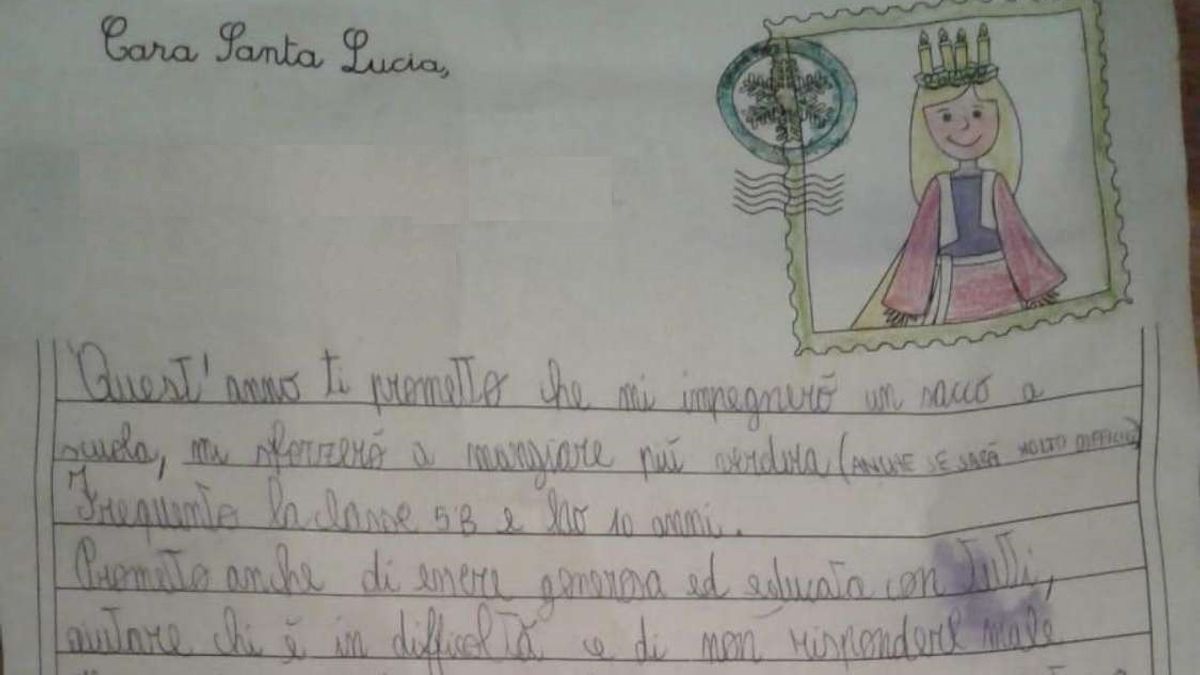 Cara Santa Lucia,
Quest'anno ti prometto che mi impegnerò un sacco a
scuola, mi sforzerò a mangiare più verdura (ANCHE SE SARÀ MOLTO DIFFICILE)
Frequento la classe 5B e ho 10 anni.
Prometto anche di essere generosa ed educata con tutti,
aiutare chi è in difficoltà e di non rispondere male